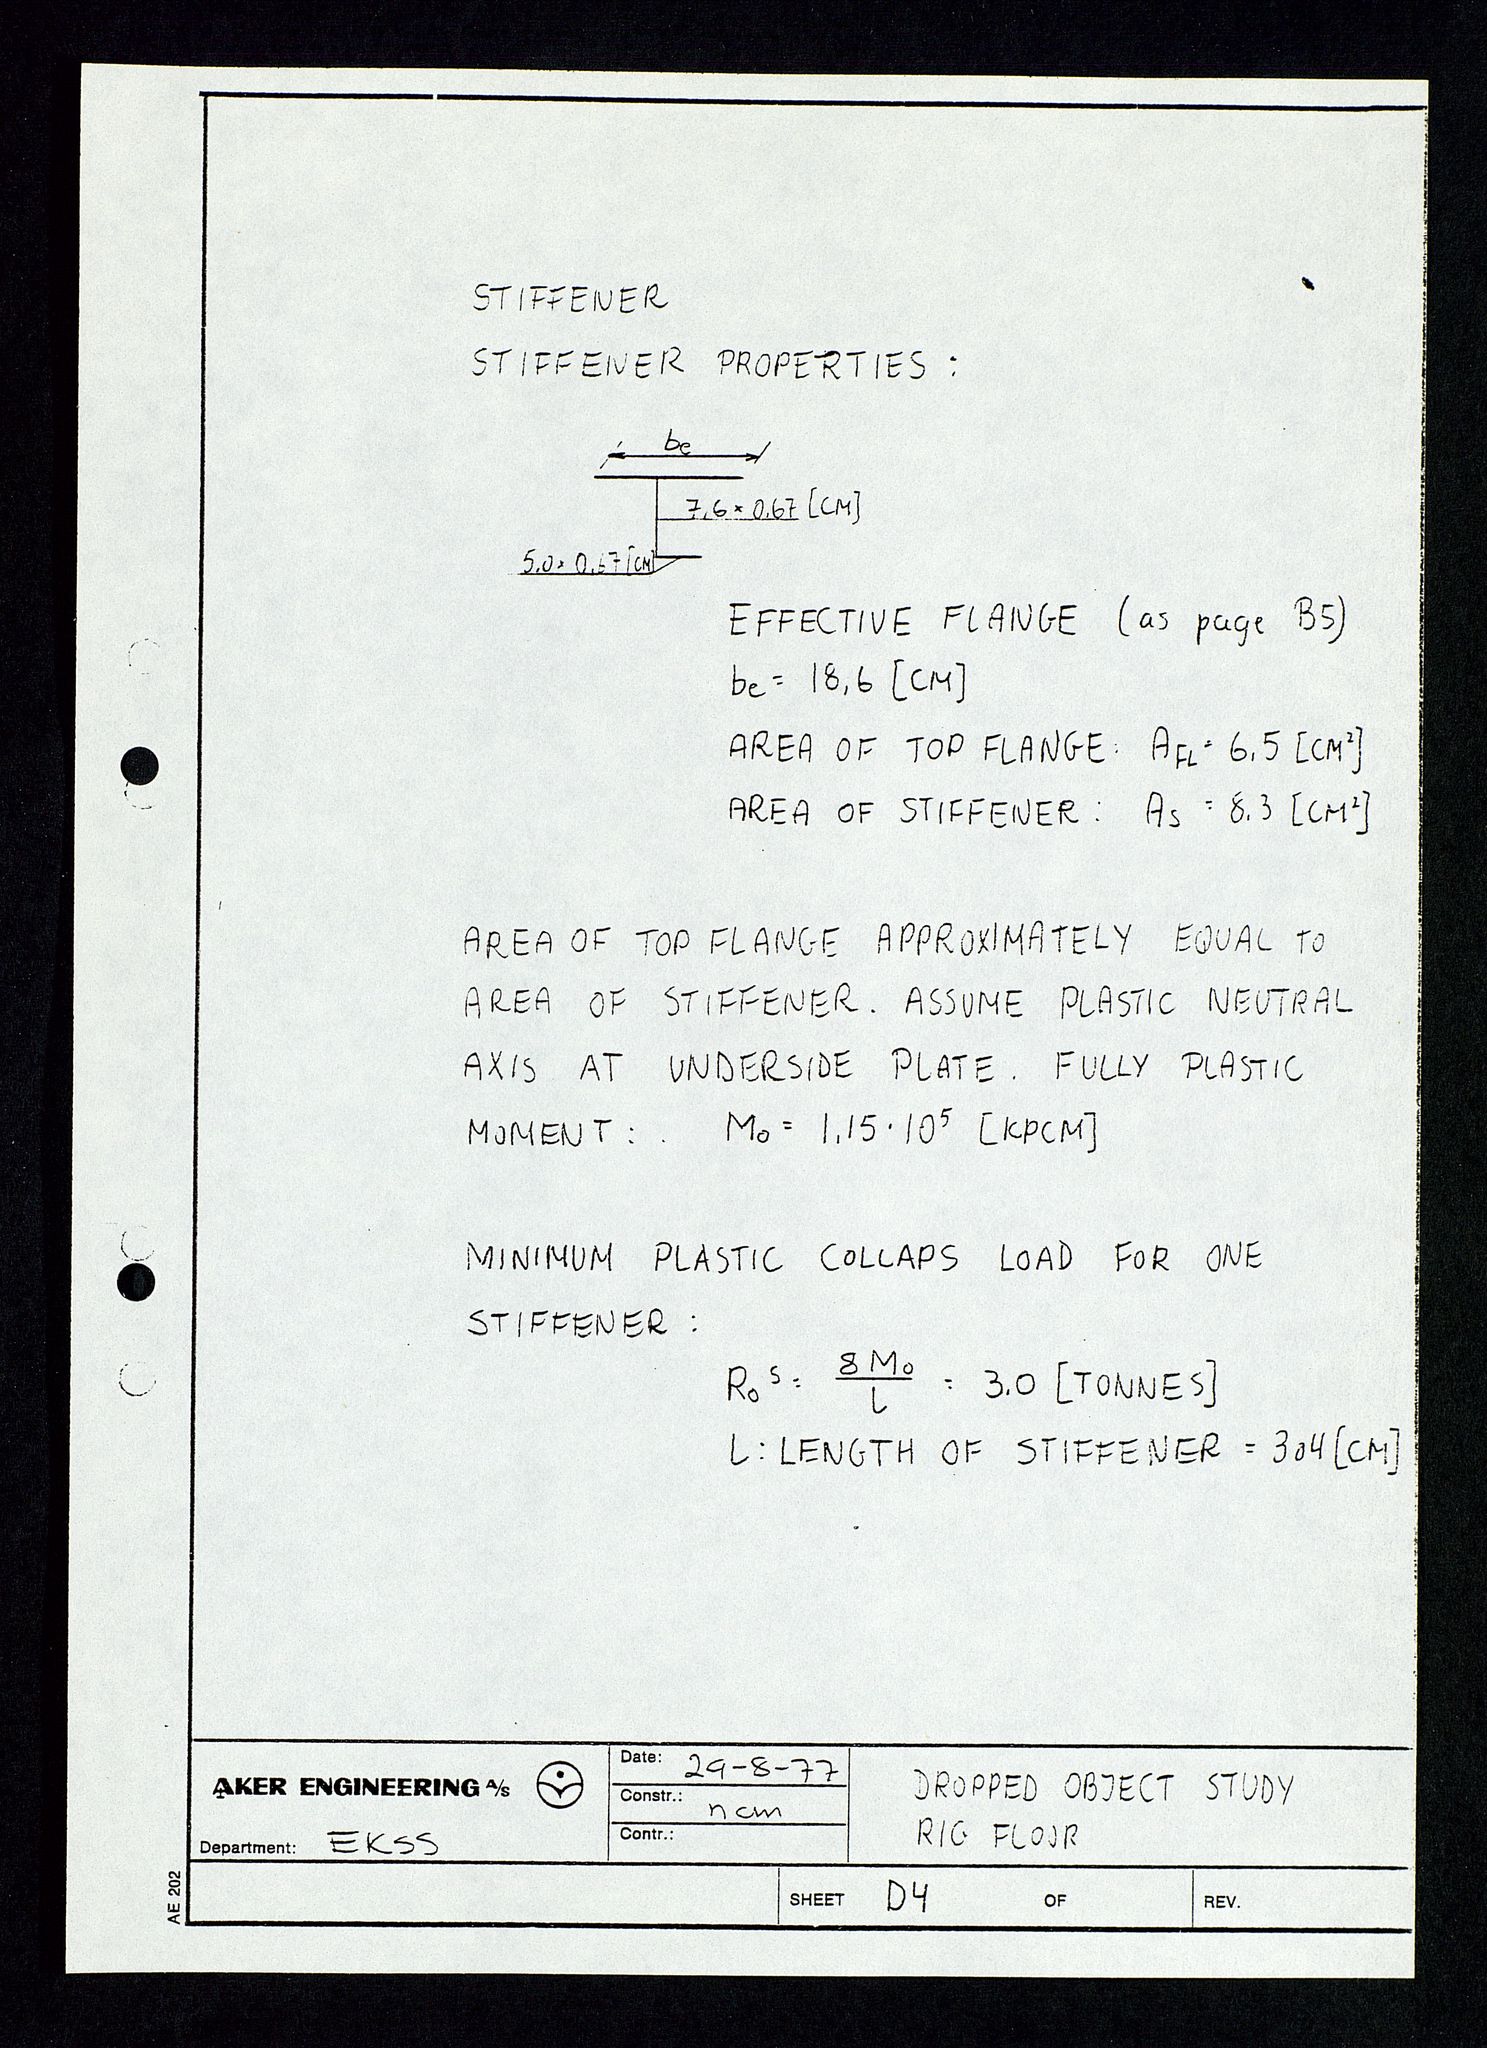 STIFFENER
STIFFENER PROPERTIES :
be
7,6 × 0,67 [CM]
5.0 × 0.67 [CM]
EFFECTIVE FLANGE (as page B5)
be = 18,6 [CM]
AREA OF TOP FLANGE: AFL = 6.5 [CM²]
AREA OF STIFFENER: AS = 8.3 [CM²]
AREA OF TOP FLANGE APPROXIMATELY EQUAL TO
AREA OF STIFFENER. ASSUME PLASTIC NEUTRAL
AXIS AT UNDERSIDE PLATE. FULLY PLASTIC
MOMENT: M₀ = 1.15·10⁵ [KPCM]
MINIMUM PLASTIC COLLAPS LOAD FOR ONE
STIFFENER :
R₀ˢ = 8 M₀ / L = 3.0 [TONNES]
L: LENGTH OF STIFFENER = 304 [CM]
AKER ENGINEERING A/S
Department: EKSS
Date: 29-8-77
Constr.: ncm
Contr.:
DROPPED OBJECT STUDY
RIG FLOOR
SHEET D4 OF
REV.
AE 202